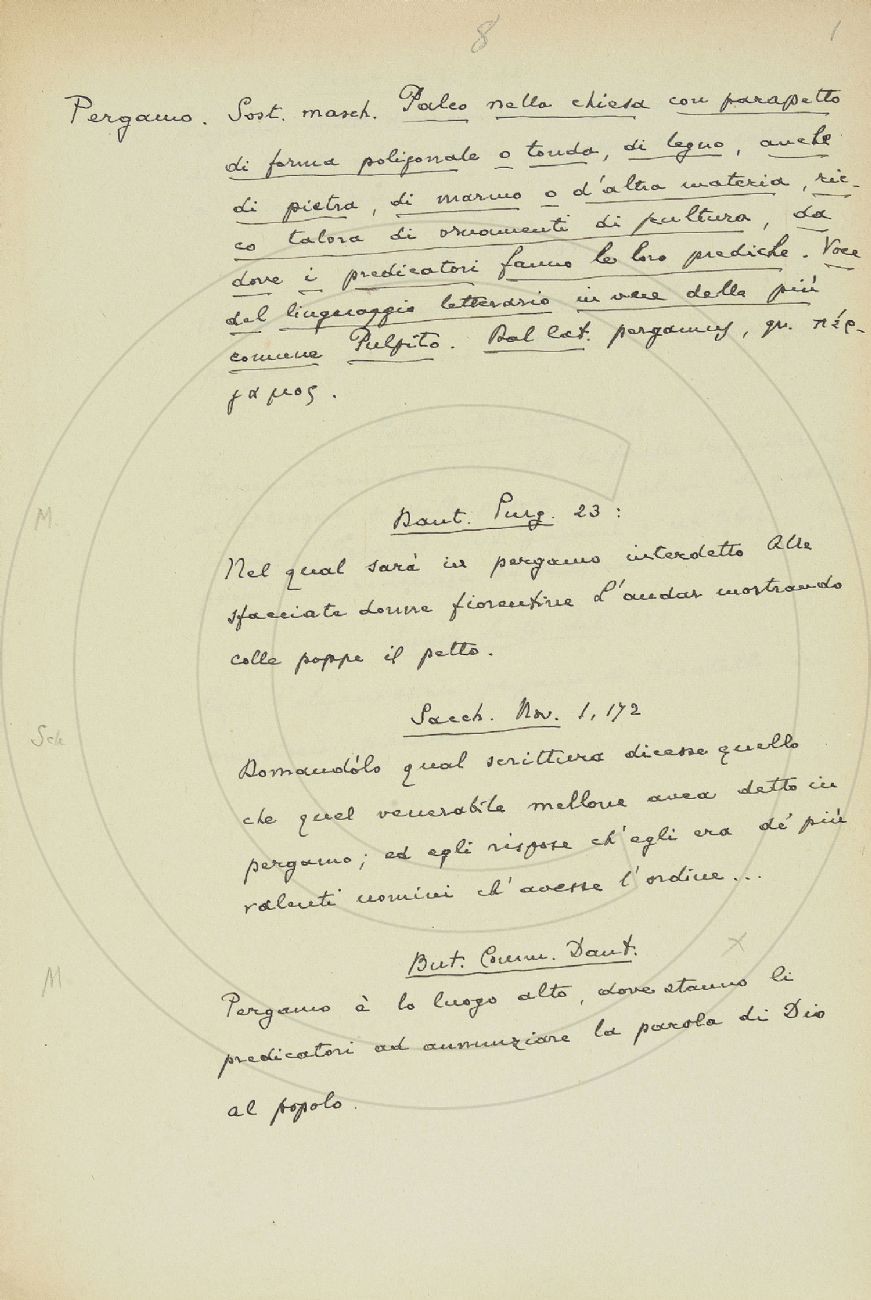 8 1
Pergamo. Sost. masch. Palco nella chiesa con parapetto
di forma poligonale o tonda, di legno, anche
di pietra, di marmo o d'altra materia, ric-
co talora di ornamenti di scultura, da
dove i predicatori fanno le loro prediche. Voce
del linguaggio letterario in vece della più
comune Pulpito. Dal lat. pergamus, gr. πέρ-
γαμος.
Dant. Purg. 23:
M
Nel qual sarà in pergamo interdetto Alle
sfacciate donne fiorentine L'andar mostrando
colle poppe il petto.
Sacch. Nov. 1, 172
Sch
Domandólo qual scrittura dicesse quello
che quel venerabile mellone avea detto in
pergamo; ed egli rispose ch'egli era de' più
valenti uomini ch'avesse l'ordine...
But. Comm. Dant. X
M
Pergamo è lo luogo alto, dove stanno li
predicatori ad annunziare la parola di Dio
al popolo.